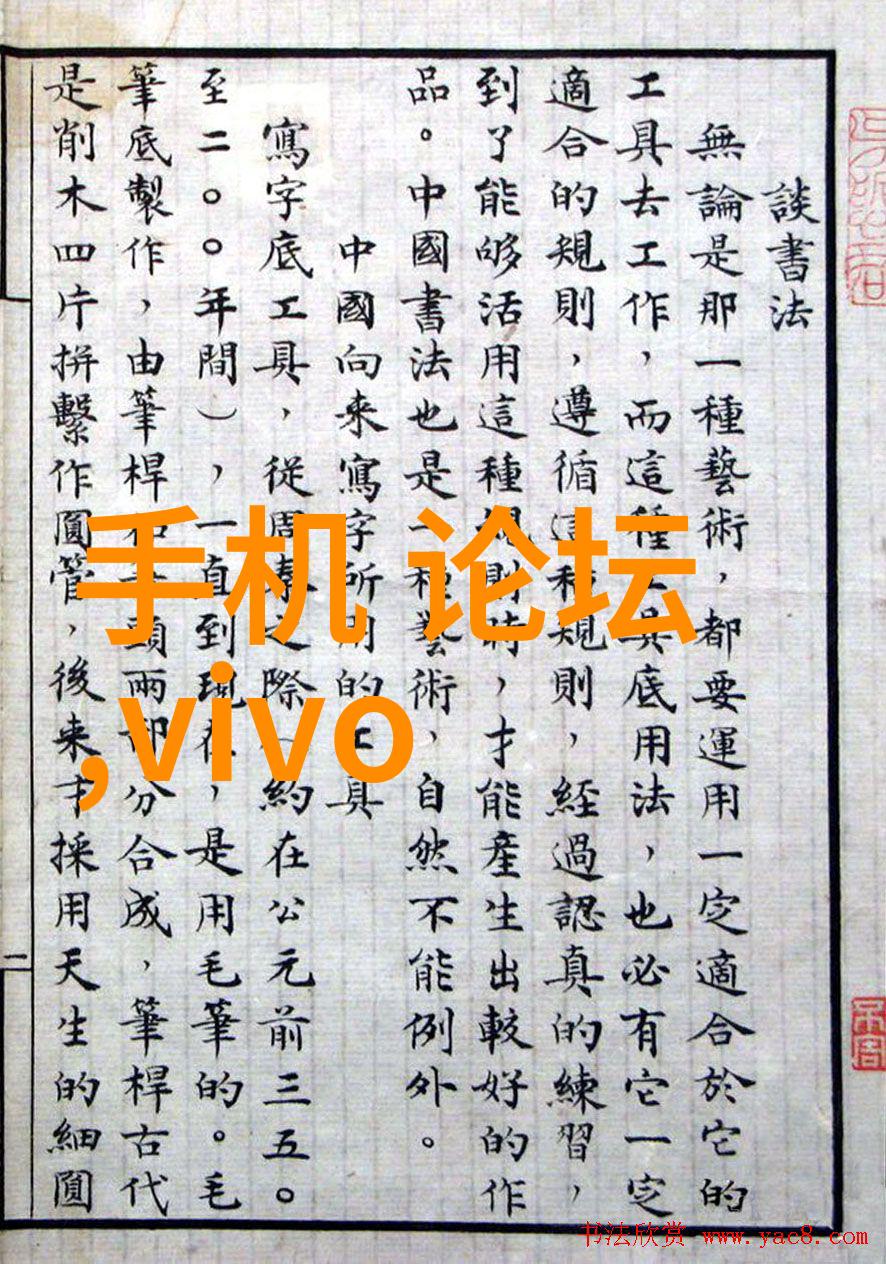 談書法
無論是那一種藝術，都要運用一定適合於它的
工具去工作，而這種工具底用法，也必有它一定
適合的規則，遵循這種規則，經過認真的練習，
到了能够活用這種規則時，才能產生出較好的作
品。中國書法也是一種藝術，自然不能例外。
中國向来寫字所用的工具
寫字底工具，從周秦之際（約在公元前三五〇
至二〇〇年間），一直到現在，是用毛筆的。毛
筆底製作，由筆桿和筆頭兩部分合成，筆桿古代
是削木四片拼繫作圓管，後来才採用天生的細圓
二
手机 论坛
,vivo
书法欣赏 www.yac8.com